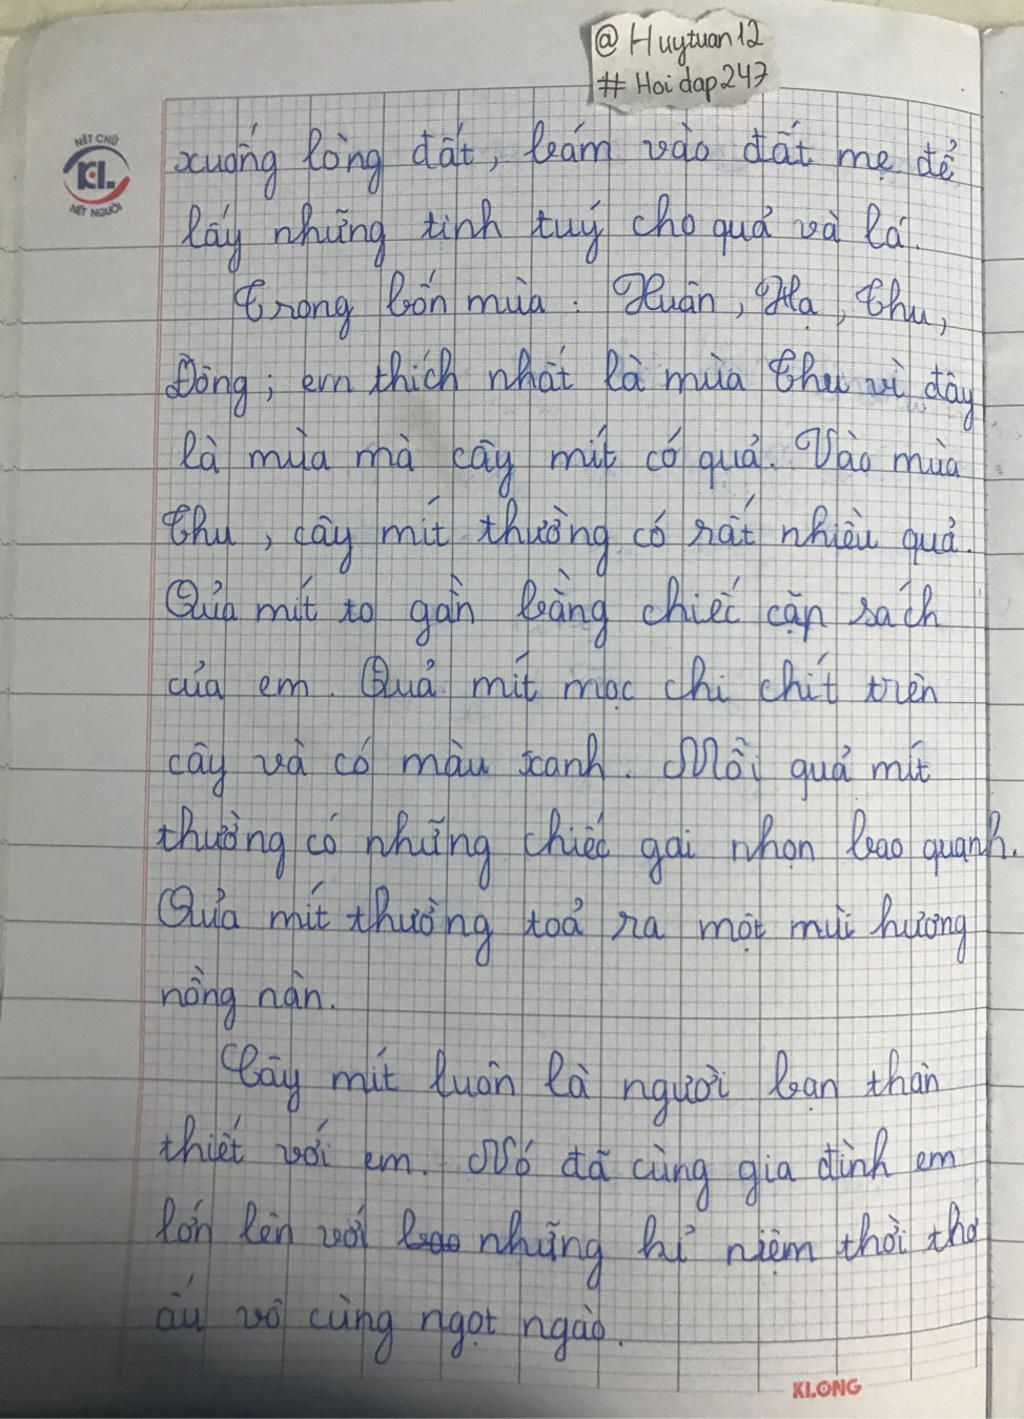 @ Huytuan12
# Hoidap247
NÉT CHỮ
KL.
NẾT NGƯỜI
xuống lòng đất, bám vào đất mẹ để
lấy những tinh tuý cho quả và lá.
Trong bốn mùa : Xuân, Hạ, Thu,
Đông; em thích nhất là mùa Thu vì đây
là mùa mà cây mít có quả. Vào mùa
Thu, cây mít thường có rất nhiều quả.
Qủa mít to gần bằng chiếc cặp sách
của em. Quả mít mọc chi chít trên
cây và có màu xanh. Mỗi quả mít
thường có những chiếc gai nhọn bao quanh.
Qủa mít thường toả ra một mùi hương
nồng nàn.
Cây mít luôn là người bạn thân
thiết với em. Nó đã cùng gia đình em
lớn lên với bao những kỉ niệm thời thơ
ấu vô cùng ngọt ngào.
KLONG